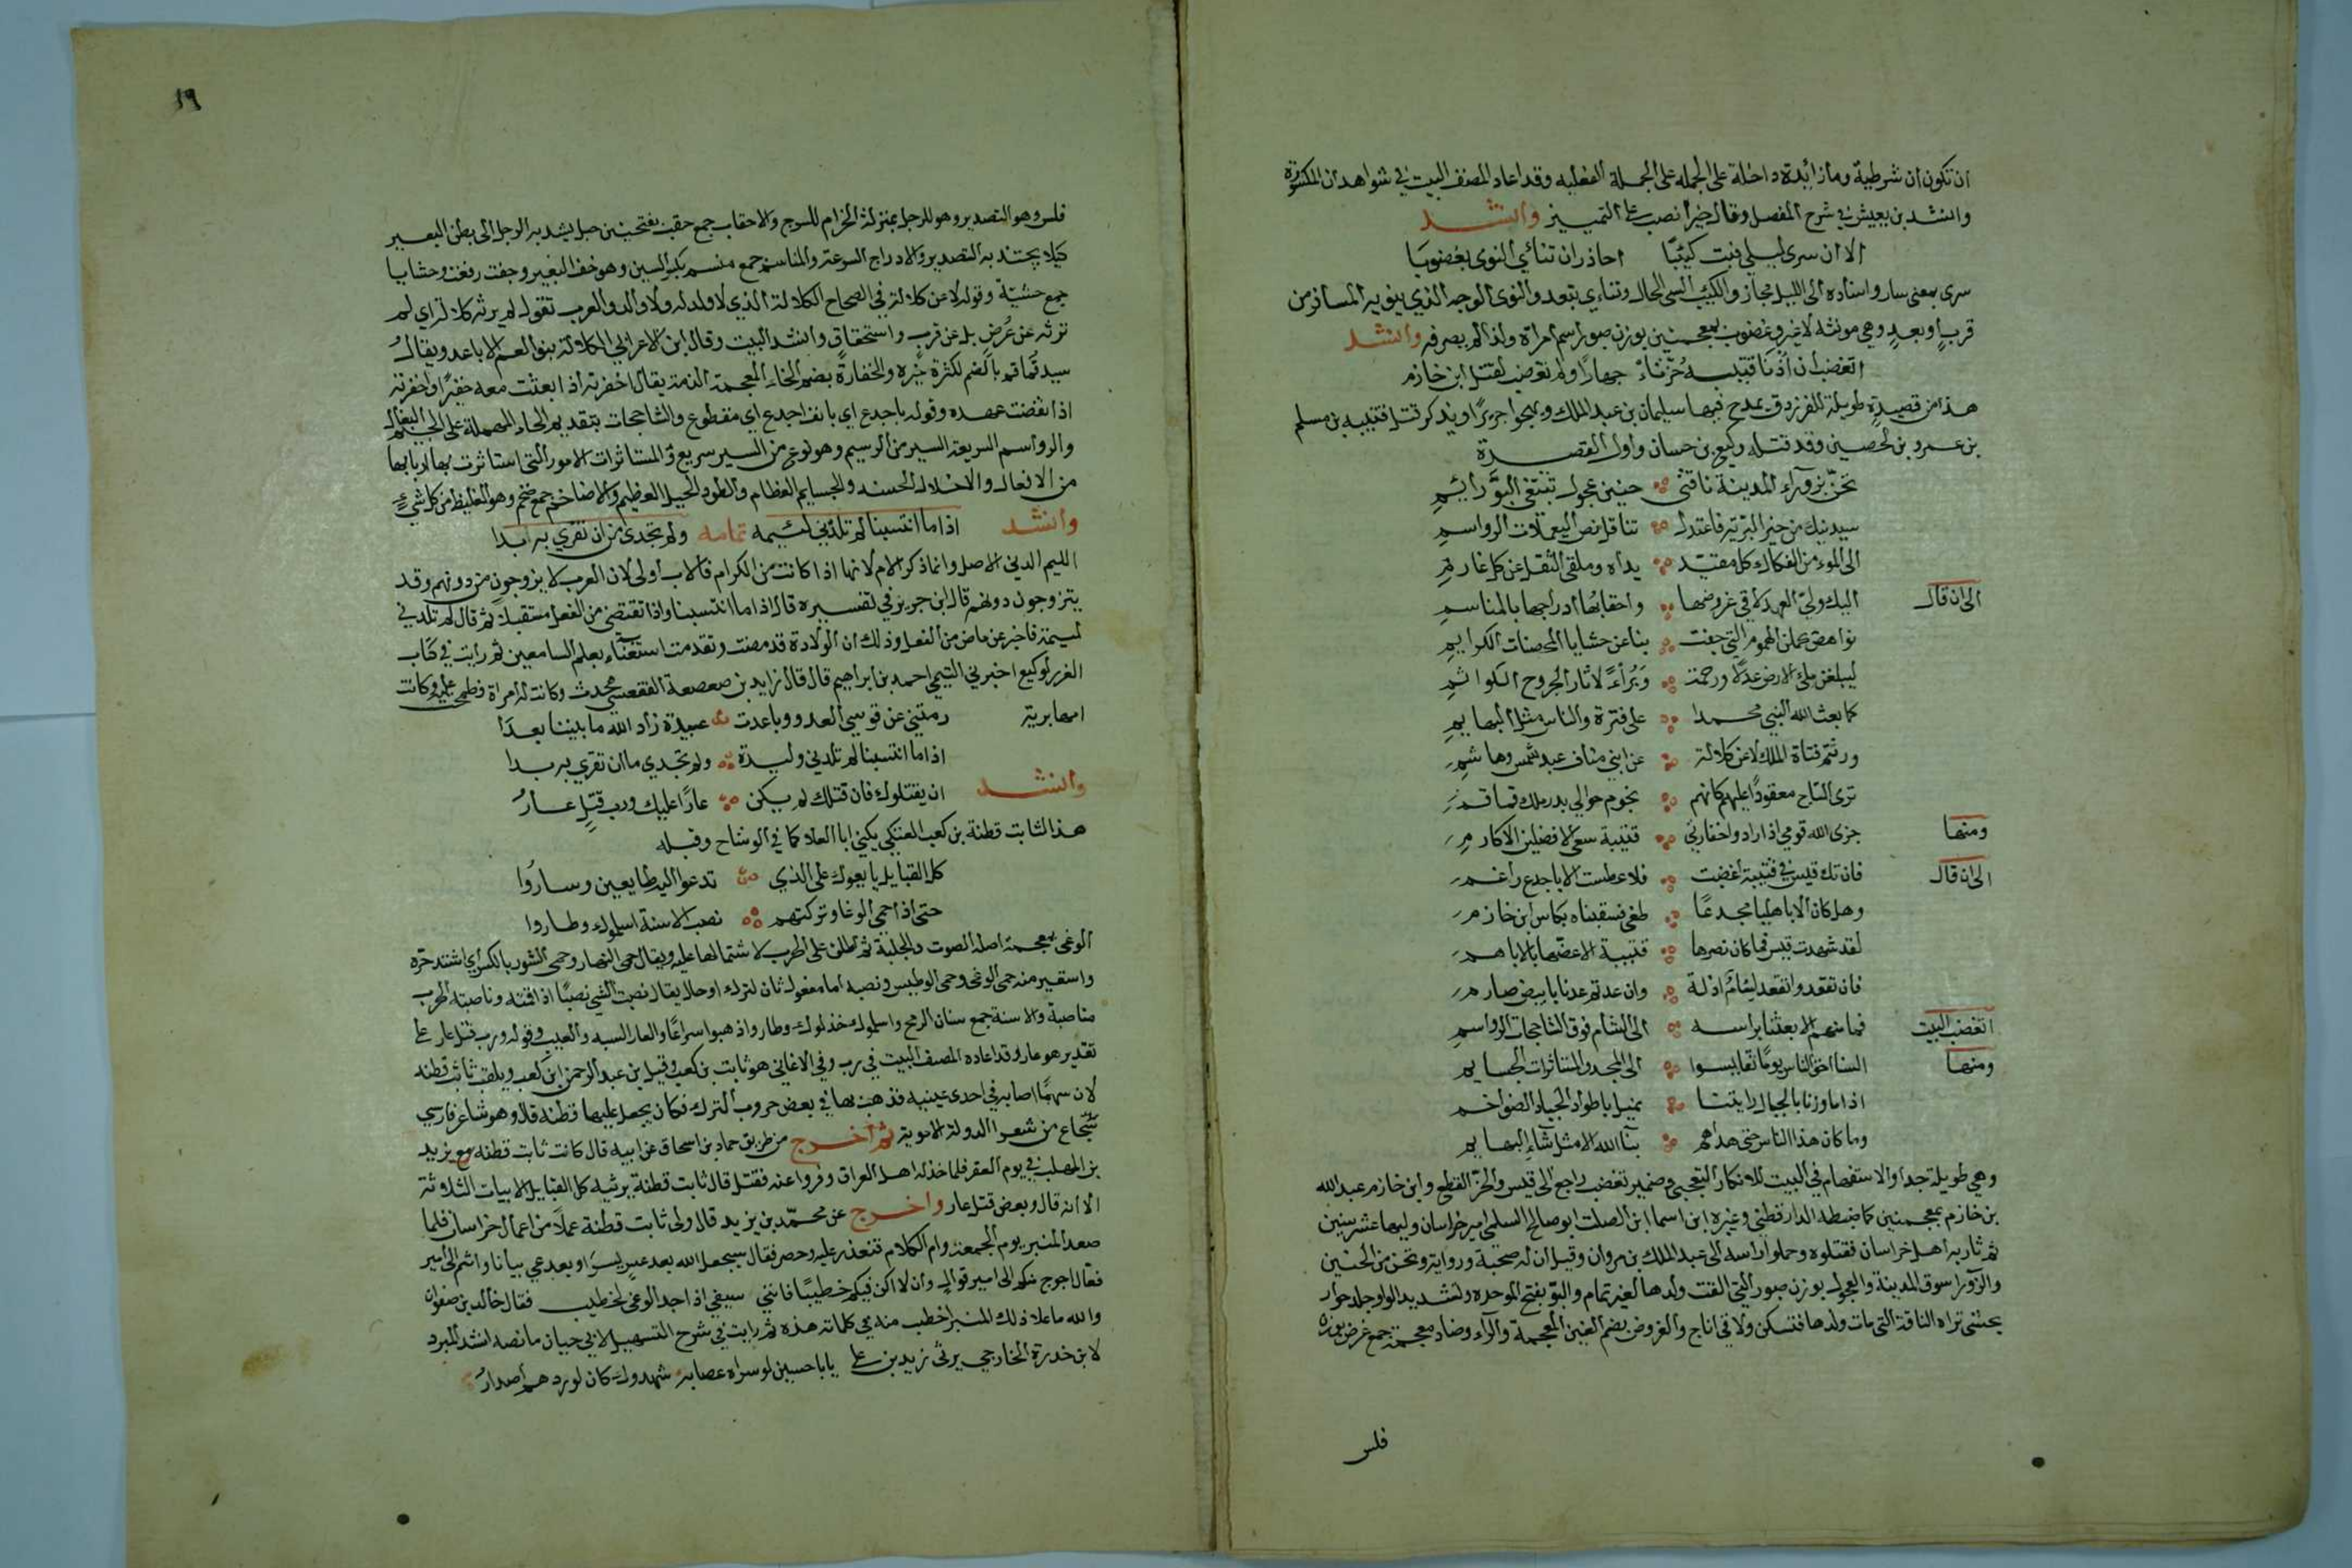 ان تكون ان شرطية وما زائدة داخلة على الجمله على الجملة الفعليه وقد اعاد المصنف البيت في شواهد ان المكسورة
وانشد بن يعيش في شرح المفصل وقال خيرا نصب على التمييز وانشد
الا ان سرى ليلى فبت كئيبا احاذر ان تنأي النوى بغضوبا
سرى بمعنى سار واسناده الى الليل مجاز والكئيب السي الحال وتناءي بتعد والنوى الوجه الذي ينويه المسافر من
قرب او بعد وهي مونثه لا غير وغضوب بمعجمتين بوزن صبور اسم امراة ولذا لم يصرفه وانشد
اتغضب ان أذنا قتيبه حزتا جهارا ولم تغضب لقتل ابن خازم
هذا من قصيدة طويلة للفرزدق يمدح فيها سليمان بن عبد الملك ويهجوا جريرا ويذكر قتل قتيبه بن مسلم
بن عمرو بن لحصين وقد قتله وكيع بن حسان واول القصيدة
تحن بزورآء المدينة ناقتي حنين عجول تبتغي البو رائم
سيدنيك من خير البرية فاعتدل تناقل نص اليعملات الرواسم
الى المؤمن الفكاك كل مقيد يداه وملقى الثقل عن كل غارم
الى ان قال اليك ولي العهد لاقى غروضها واحقابها ادراجها بالمناسم
نواهض يحملن الهموم التي جفت بنا عن حشايا المحصنات الكرايم
ليبلغن ملى الارض عدلا ورحمة وبرأء لاثار الجروح الكواثم
كما بعث الله النبي محمدا على فترة والناس مثل البهايم
ورثتم قناة الملك لا عن كلالة عن ابني مناف عبد شمس وهاشم
ترى التاج معقودا عليهم كانهم نجوم حوالي بدر ملك قماقم
ومنها جزى الله قومي اذا راد واخفارتي قتيبة سعى الافضلين الاكارم
الى ان قال فان تك قيس في قتيبة اغضبت فلا عطست الا باجدع راغم
وهل كان الا باهليا مجدعا طغى فسقيناه بكاس ابن خازم
لقد شهدت قيس فما كان نصرها قتيبة الا عضها بالاباهم
فان تقعد واتقعد لئام اذلة وان عدتم عدنا بابيض صارم
اتغضب البيت فما منهم الا بعثنا براسه الى الشام فوق الشاحجات الرواسم
ومنها السنا احق الناس يوما تقايسوا الى المجد والمستاثرات الجسايم
اذا ما وزنا بالجبال رايتنا نميل باطواد الجياد الضواخم
وما كان هذا الناس حتى هداهم بنا الله الا مثل شاء البهايم
وهي طويلة جدا والاستفهام في البيت للانكار التعجبي وضمير تغضب راجع الى قيس والحز القطع وابن خازم عبد الله
بن خازم بمعجمتين كما ضبطه الدارقطني وغيره ابن اسما ابن الصلت ابو صالح السلمي امير خراسان وليها عشر سنين
ثم ثار به اهل خراسان فقتلوه وحملوا راسه الى عبد الملك بن مروان وقيل ان له صحبة ورواية وتحن من الحنين
والزورا سوق المدينة والعجول بوزن صبور التي القت ولدها لغير تمام والبو بفتح الموحده وتشديد الواو جلد حوار
يحشى تراه الناقة التي مات ولدها فتسكن ولاقى اناج والغروض بضم الغين المعجمة والرآء وضاد معجمة جمع غرض بوزن
فلس
١٩
فلس وهو التصدير وهو للرجل بمنزلة الخزام للسرج والاحقاب جمع حقب بفتحتين حبل يشد به الرحل الى بطن البعير
كيلا يجتذبه التصدير والادراج السرعة والمناسم جمع منسم بكسر السين وهو خف البعير وجفت رفعت وحشايا
جمع حشية وقوله لا عن كلالة في الصحاح الكلالة الذي لا ولد له ولا والد والعرب تقول لم يرثه كلالة اي لم
ترثه عن عرض بل عن قرب واستحقاق وانشد البيت وقال ابن الاعرابي الكلالة بنوا العم الاباعد ويقال
سيد قماقم بالضم لكثرة خيره والخفارة بضم الخاء المعجمة الذمة يقال اخفرته اذا ابعثت معه خفيرا واخفرته
اذا نقضت عهده وقوله باجدع اي بانف اجدع اي مقطوع والشاحجات بتقديم الحاء المهملة على الجيم البغال
والرواسم السريعة السير من الرسيم وهو نوع من السير سريع والمستاثرات الامور التي استاثرت بها اربابها
من الافعال والاخلال الحسنه والجسايم العظام والطود الجبل العظيم والاضاخم جمع ضخم وهو الغليظ من كل شيء
وانشد اذا ما انتسبنا لم تلدني لئيمه تمامه ولم تجدى من ان تقري به ابدا
اللئيم الدني الاصل وانما ذكر الام لانها اذا كانت من الكرام فالاب أولى لان العرب لا يزوجون من دونهم وقد
يتزوجون دونهم قال ابن جرير في تفسيره قال اذا ما انتسبنا واذا تقتضي من الفعل مستقبلا ثم قال لم تلدني
لئيمة فاخبر عن ماض من الفعل وذلك ان الولادة قد مضت وتقدمت استغناء بعلم السامعين ثم رايت في كتاب
الغرر لوكيع اخبرني التيمي احمد بن ابراهيم قال قال زايد بن صعصعة الفقعسي محدث وكانت له امراة فطمحت عليه وكانت
امها برية رمتني عن قوسي العدو وباعدت عبيدة زاد الله ما بيننا بعدا
اذا ما انتسبنا لم تلدني وليدة ولم تجدي ما ان تقري به بدا
وانشد ان يقتلوك فان قتلك لم يكن عارا عليك ورب قتل عار
هذا لثابت قطنة بن كعب العتكي يكني ابا العلا كما في الوشاح وقبله
كل القبايل بايعوك على الذي تدعوا اليه طايعين وساروا
حتى اذا حمي الوغا وتركتهم نصب الاسنة اسلموك وطاروا
الوغى بمعجمة اصله الصوت والجلبة ثم اطلق على الحرب لاشتمالها عليه ويقال حمي النهار وحمي التنور بالكسر اي اشتد حره
واستعير منه حمى الوغى وحمى الوطيس ونصبه اما مفعول ثان لترك او حال يقال نصبت الشي نصبا اذا اقمته وناصبته الحرب
مناصبة والاسنة جمع سنان الرمح واسلموك خذلوك وطاروا ذهبوا سراعا والعار السبه والعيب وقوله ورب قتل عار على
تقدير هو عار وقد اعاده المصنف البيت في رب وفي الاغاني هو ثابت بن كعب وقيل بن عبد الرحمن ابن كعب ويلقب ثابت قطنه
لان سهما اصابه في احدى عينيه فذهب بها في بعض حروب الترك فكان يجعل عليها قطنه قال وهو شاعر فارسي
شجاع من شعرا الدولة الامويه ثم اخرج من طريق حماد بن اسحاق عن ابيه قال كانت ثابت قطنه مع يزيد
بن المهلب في يوم العقر فلما خذله اهل العراق وفروا عنه فقتل قال ثابت قطنة يرثيه كل القبايل الابيات الثلاثة
الا انه قال وبعض قتل عار واخرج عن محمد بن يزيد قال ولى ثابت قطنة عملا من اعمال خراسان فلما
صعد المنبر يوم الجمعة رام الكلام فتعذر عليه وحصر فقال سيجعل الله بعد عسر يسرا وبعد عي بيانا وانتم الى امير
فعال احوج منكم الى امير قوال وان لا اكن فيكم خطيبا فانني بسيفي اذا جد الوغى لخطيب فقال خالد بن صفوان
والله ما علا ذلك المنبر اخطب منه في كلماته هذه ثم رايت في شرح التسهيل لابي حيان ما نصه انشد المبرد
لابن خدرة الخارجي يرثي زيد بن على يابا حسين لو سراه عصابة شهدوك كان لوردهم اصدار